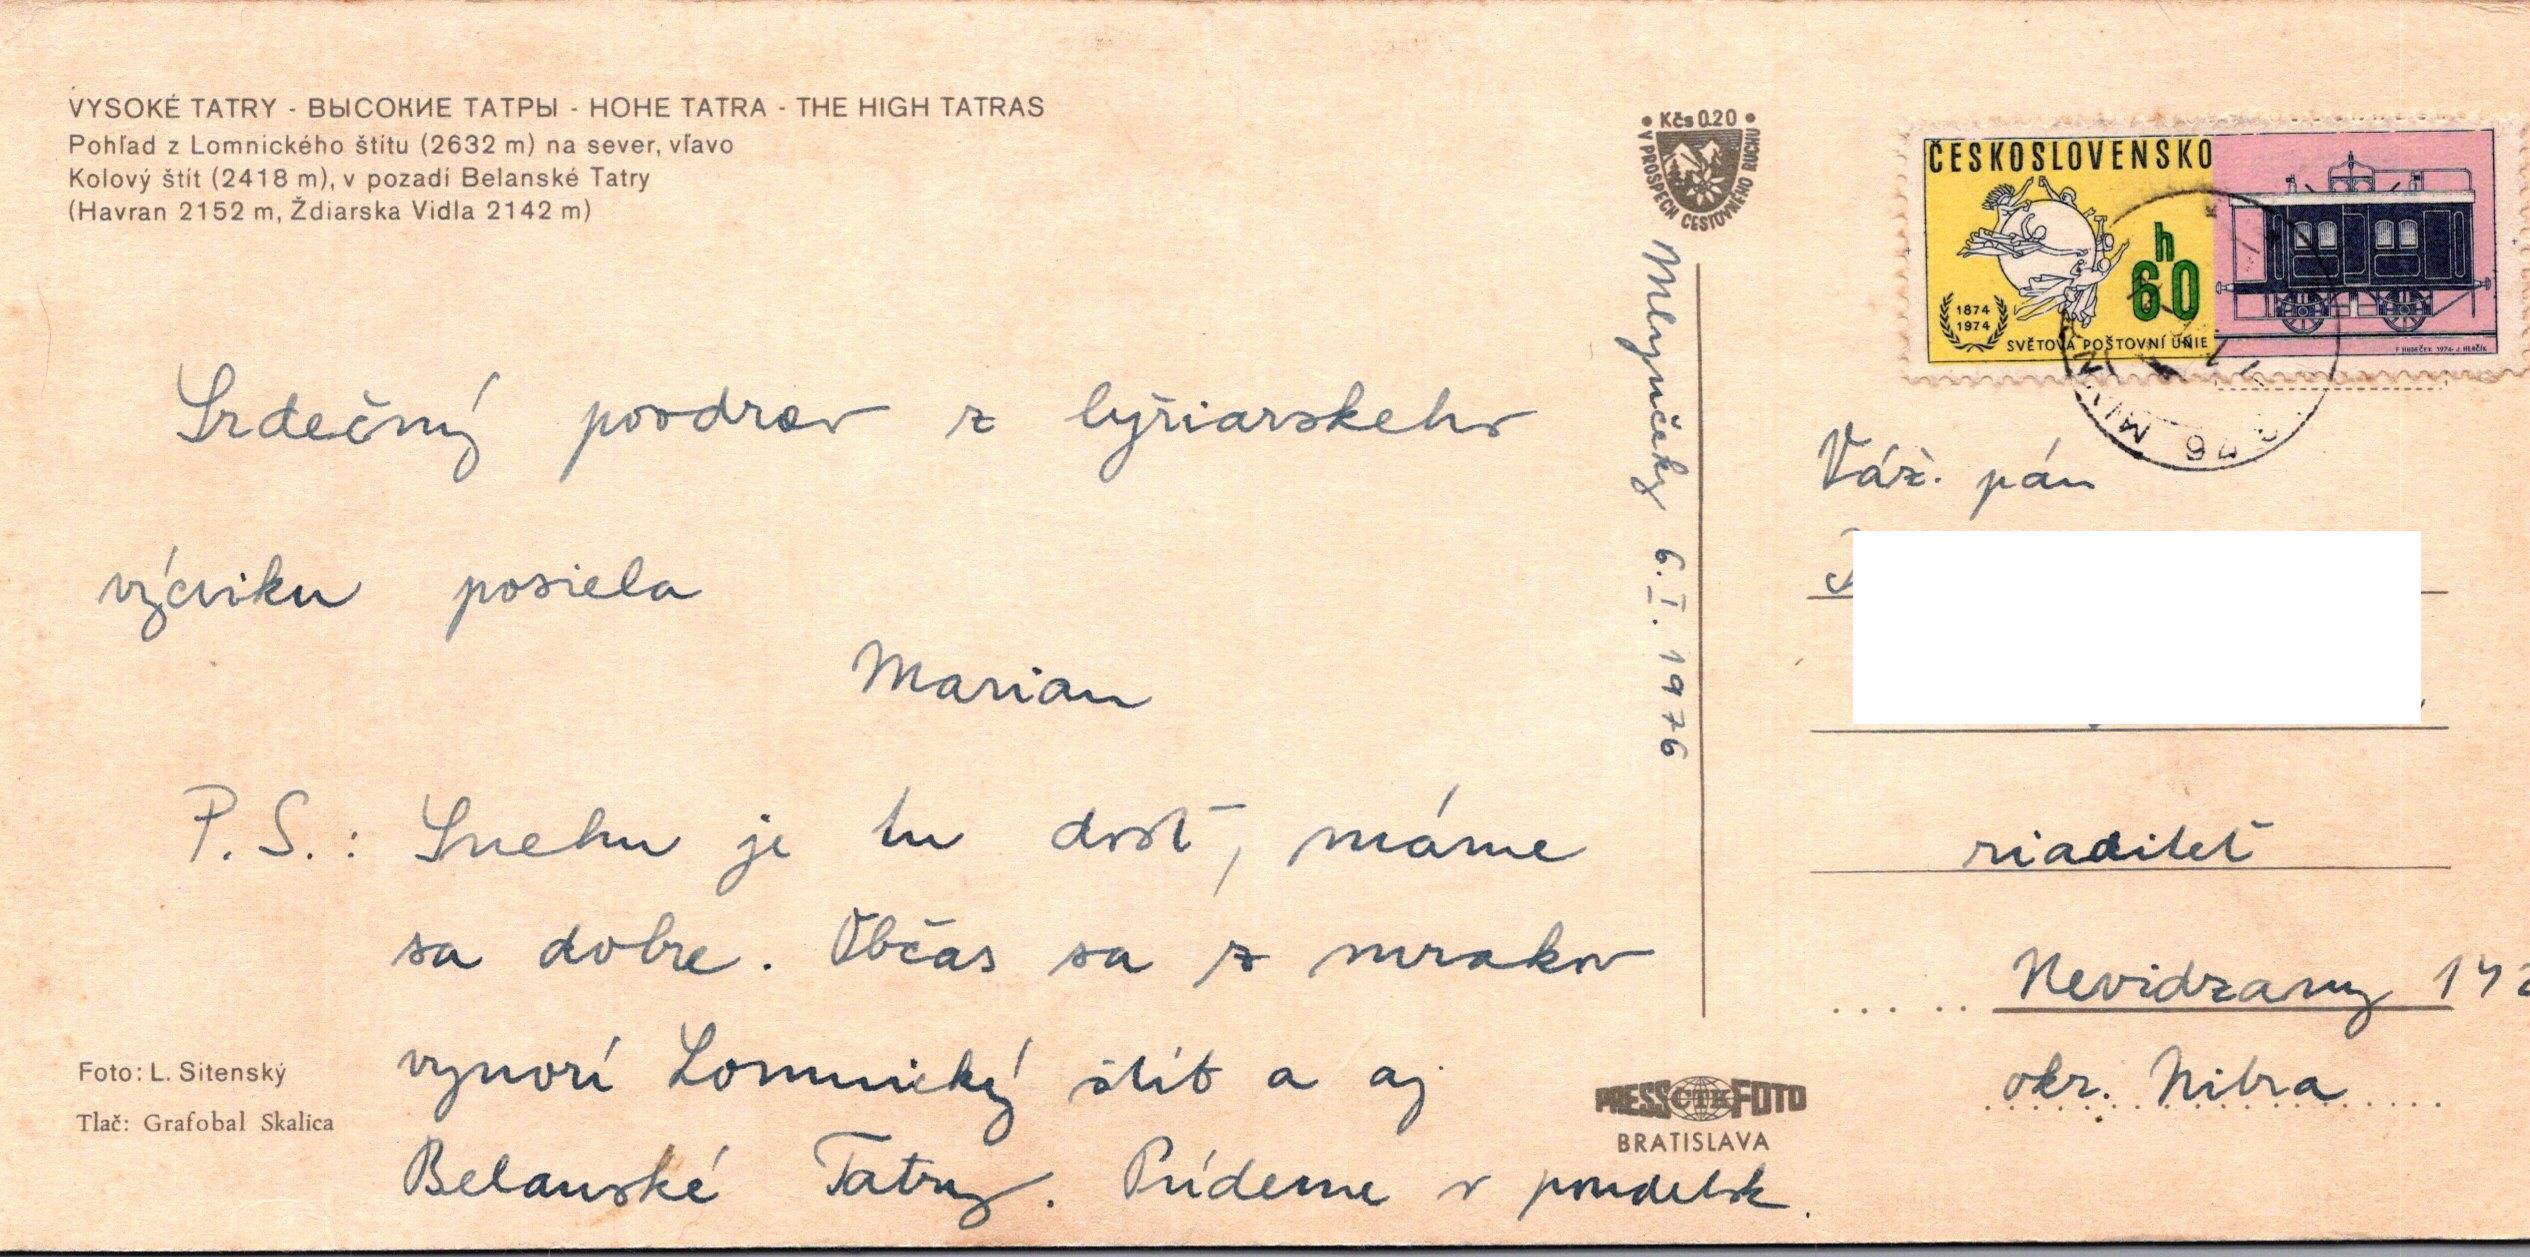 VYSOKÉ TATRY - ВЫСОКИЕ ТАТРЫ - HOHE TATRA - THE HIGH TATRAS
Pohľad z Lomnického štítu (2632 m) na sever, vľavo
Kolový štít (2418 m), v pozadí Belanské Tatry
(Havran 2152 m, Ždiarska Vidla 2142 m)
Srdečný pozdrav z lyžiarskeho
výcviku posiela
Marian
P.S.: Snehu je tu dosť, máme
sa dobre. Občas sa z mrakov
vynorí Lomnický štít a aj
Belanské Tatry. Prídeme v pondelok.
Foto: L. Sitenský
Tlač: Grafobal Skalica
• Kčs 0.20 •
V PROSPECH CESTOVNÉHO RUCHU
Mlynčeky 6. I. 1976
PRESS ČTK FOTO
BRATISLAVA
ČESKOSLOVENSKO
h
60
1874
1974
SVĚTOVÁ POŠTOVNÍ UNIE
F. HUDEČEK 1974 - J. HERČÍK
Váž. pán
riaditeľ
Nevidzany
okr. Nitra